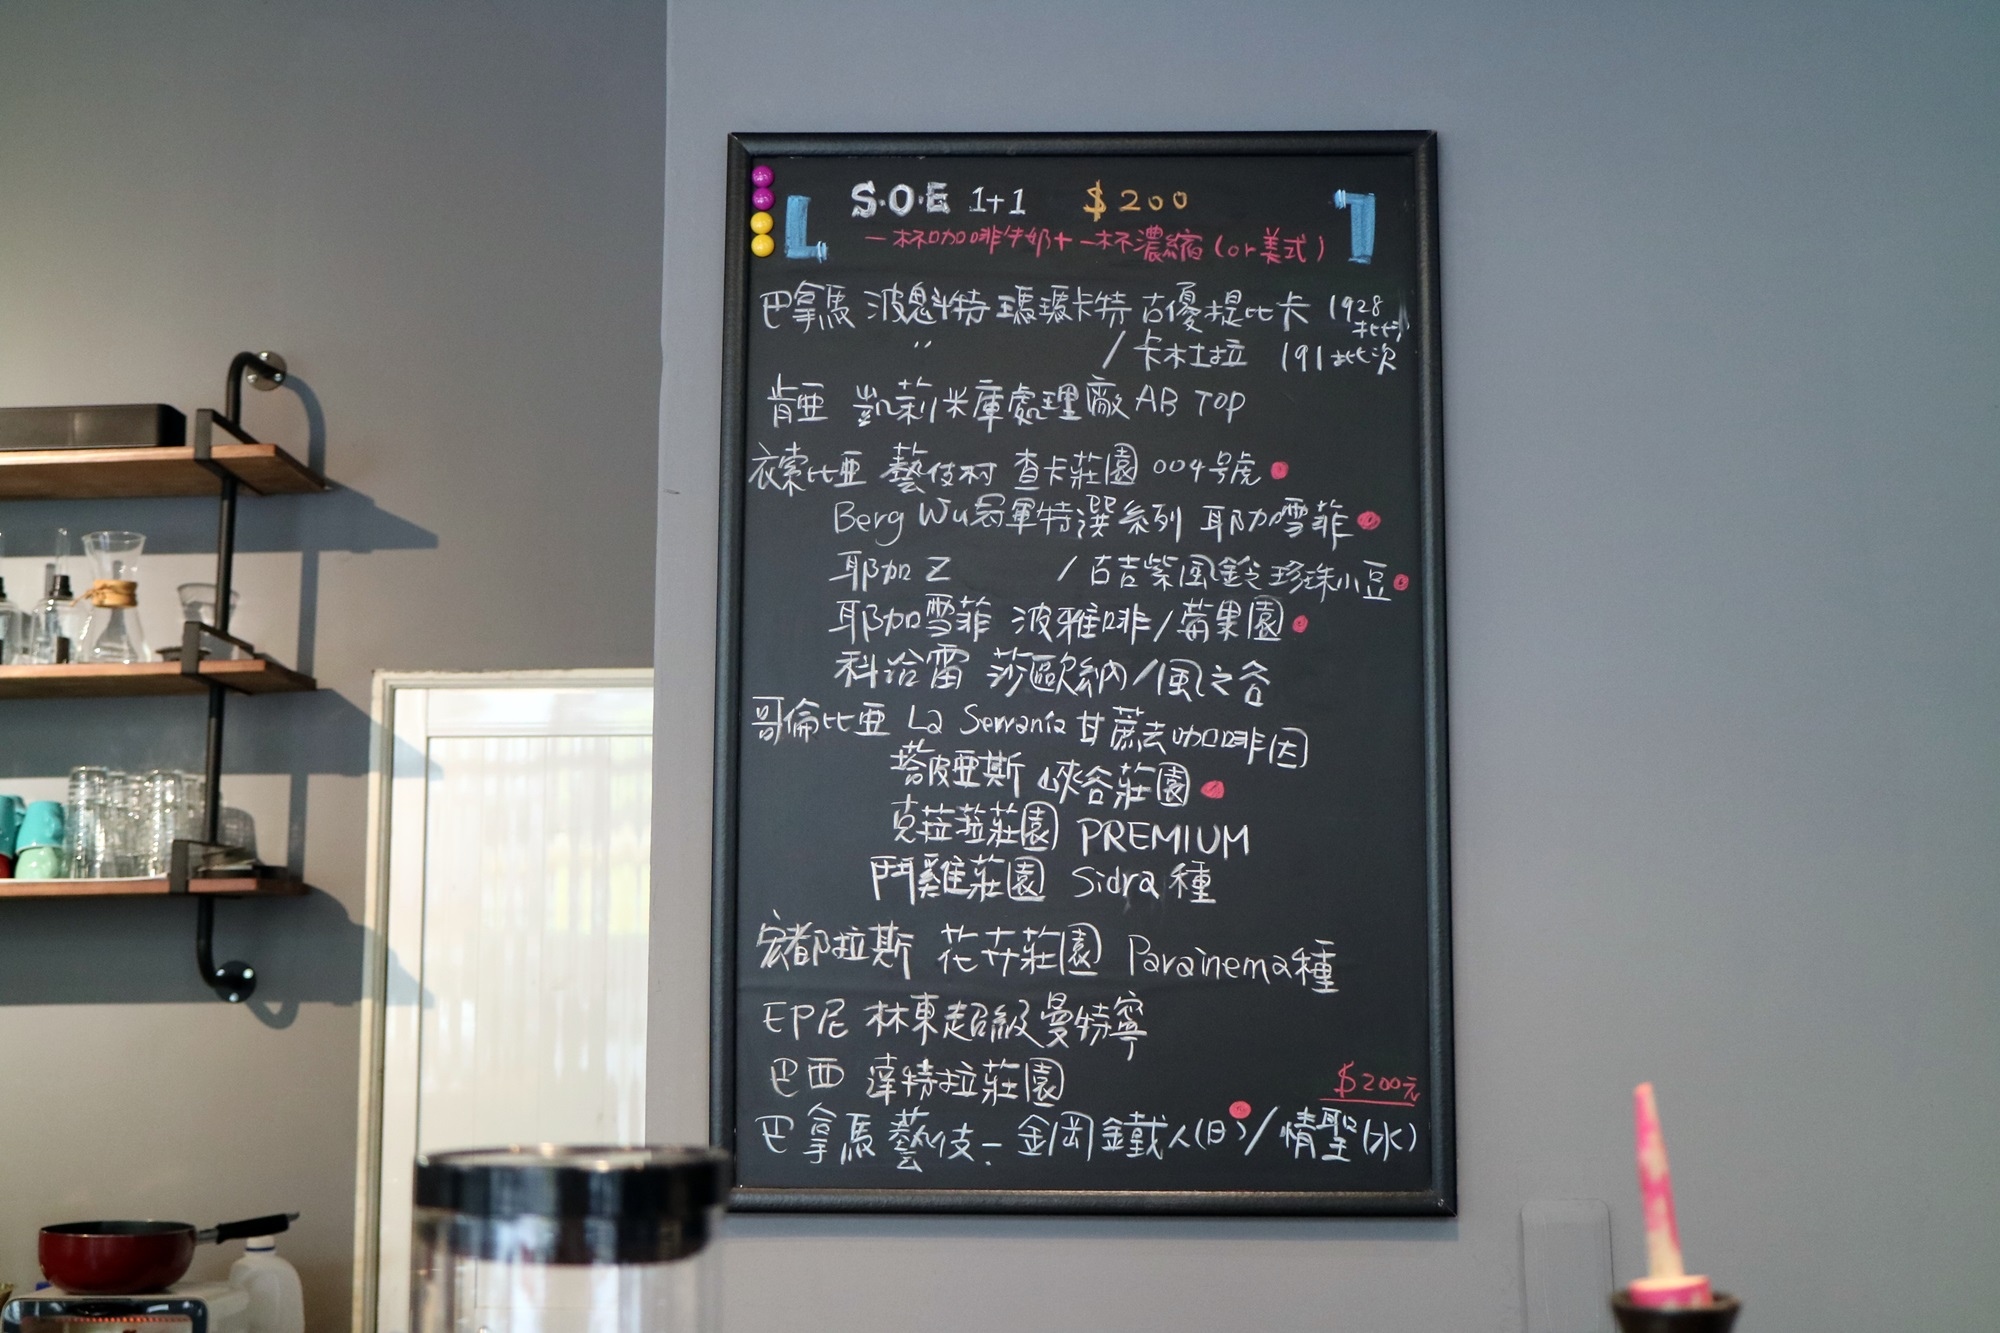 S.O.E 1+1 $200
一杯咖啡牛奶+一杯濃縮(or美式)
巴拿馬 波魁特 瑪瑙卡特 古優提比卡 1928批次
〃 /卡杜拉 191批次
肯亞 凱莉米庫處理廠 AB TOP
衣索比亞 藝伎村 查卡莊園 004號
Berg Wu冠軍特選系列 耶加雪菲
耶加 Z /古吉紫風鈴 珍珠小豆
耶加雪菲 波雅啡/莓果園
科洽雷 莎歐納/風之谷
哥倫比亞 La Serrania 甘蔗去咖啡因
塔皮亞斯 峽谷莊園
克菈菈莊園 PREMIUM
鬥雞莊園 Sidra種
宏都拉斯 花卉莊園 Parainema種
EP尼 林東超級曼特寧
巴西 達特拉莊園
$200元
巴拿馬 藝伎- 金岡鐵人(日)/情聖(水)